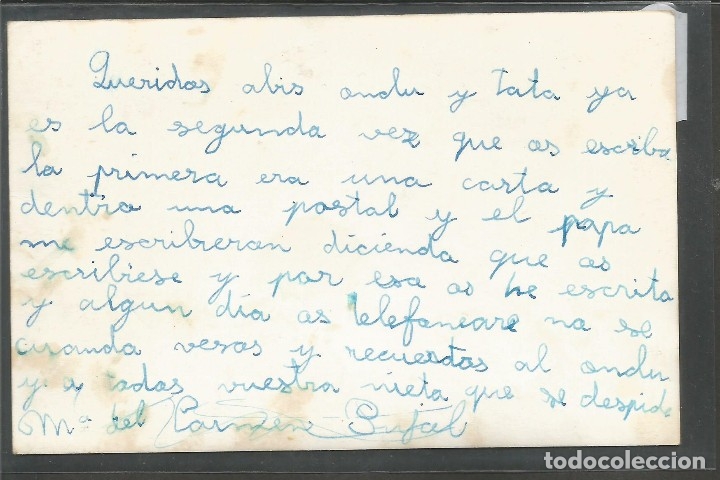 Queridos abis ondu y tata ya
es la segunda vez que os escribo
la primera era una carta y
dentro una postal y el papa
me escribieran diciendo que os
escribiese y por eso os he escrito
y algun día os telefoneare no se
cuando vesos y recuerdos al ondu
y a todos vuestra nieta que se despide
Mª del Carmen
todocoleccion.net